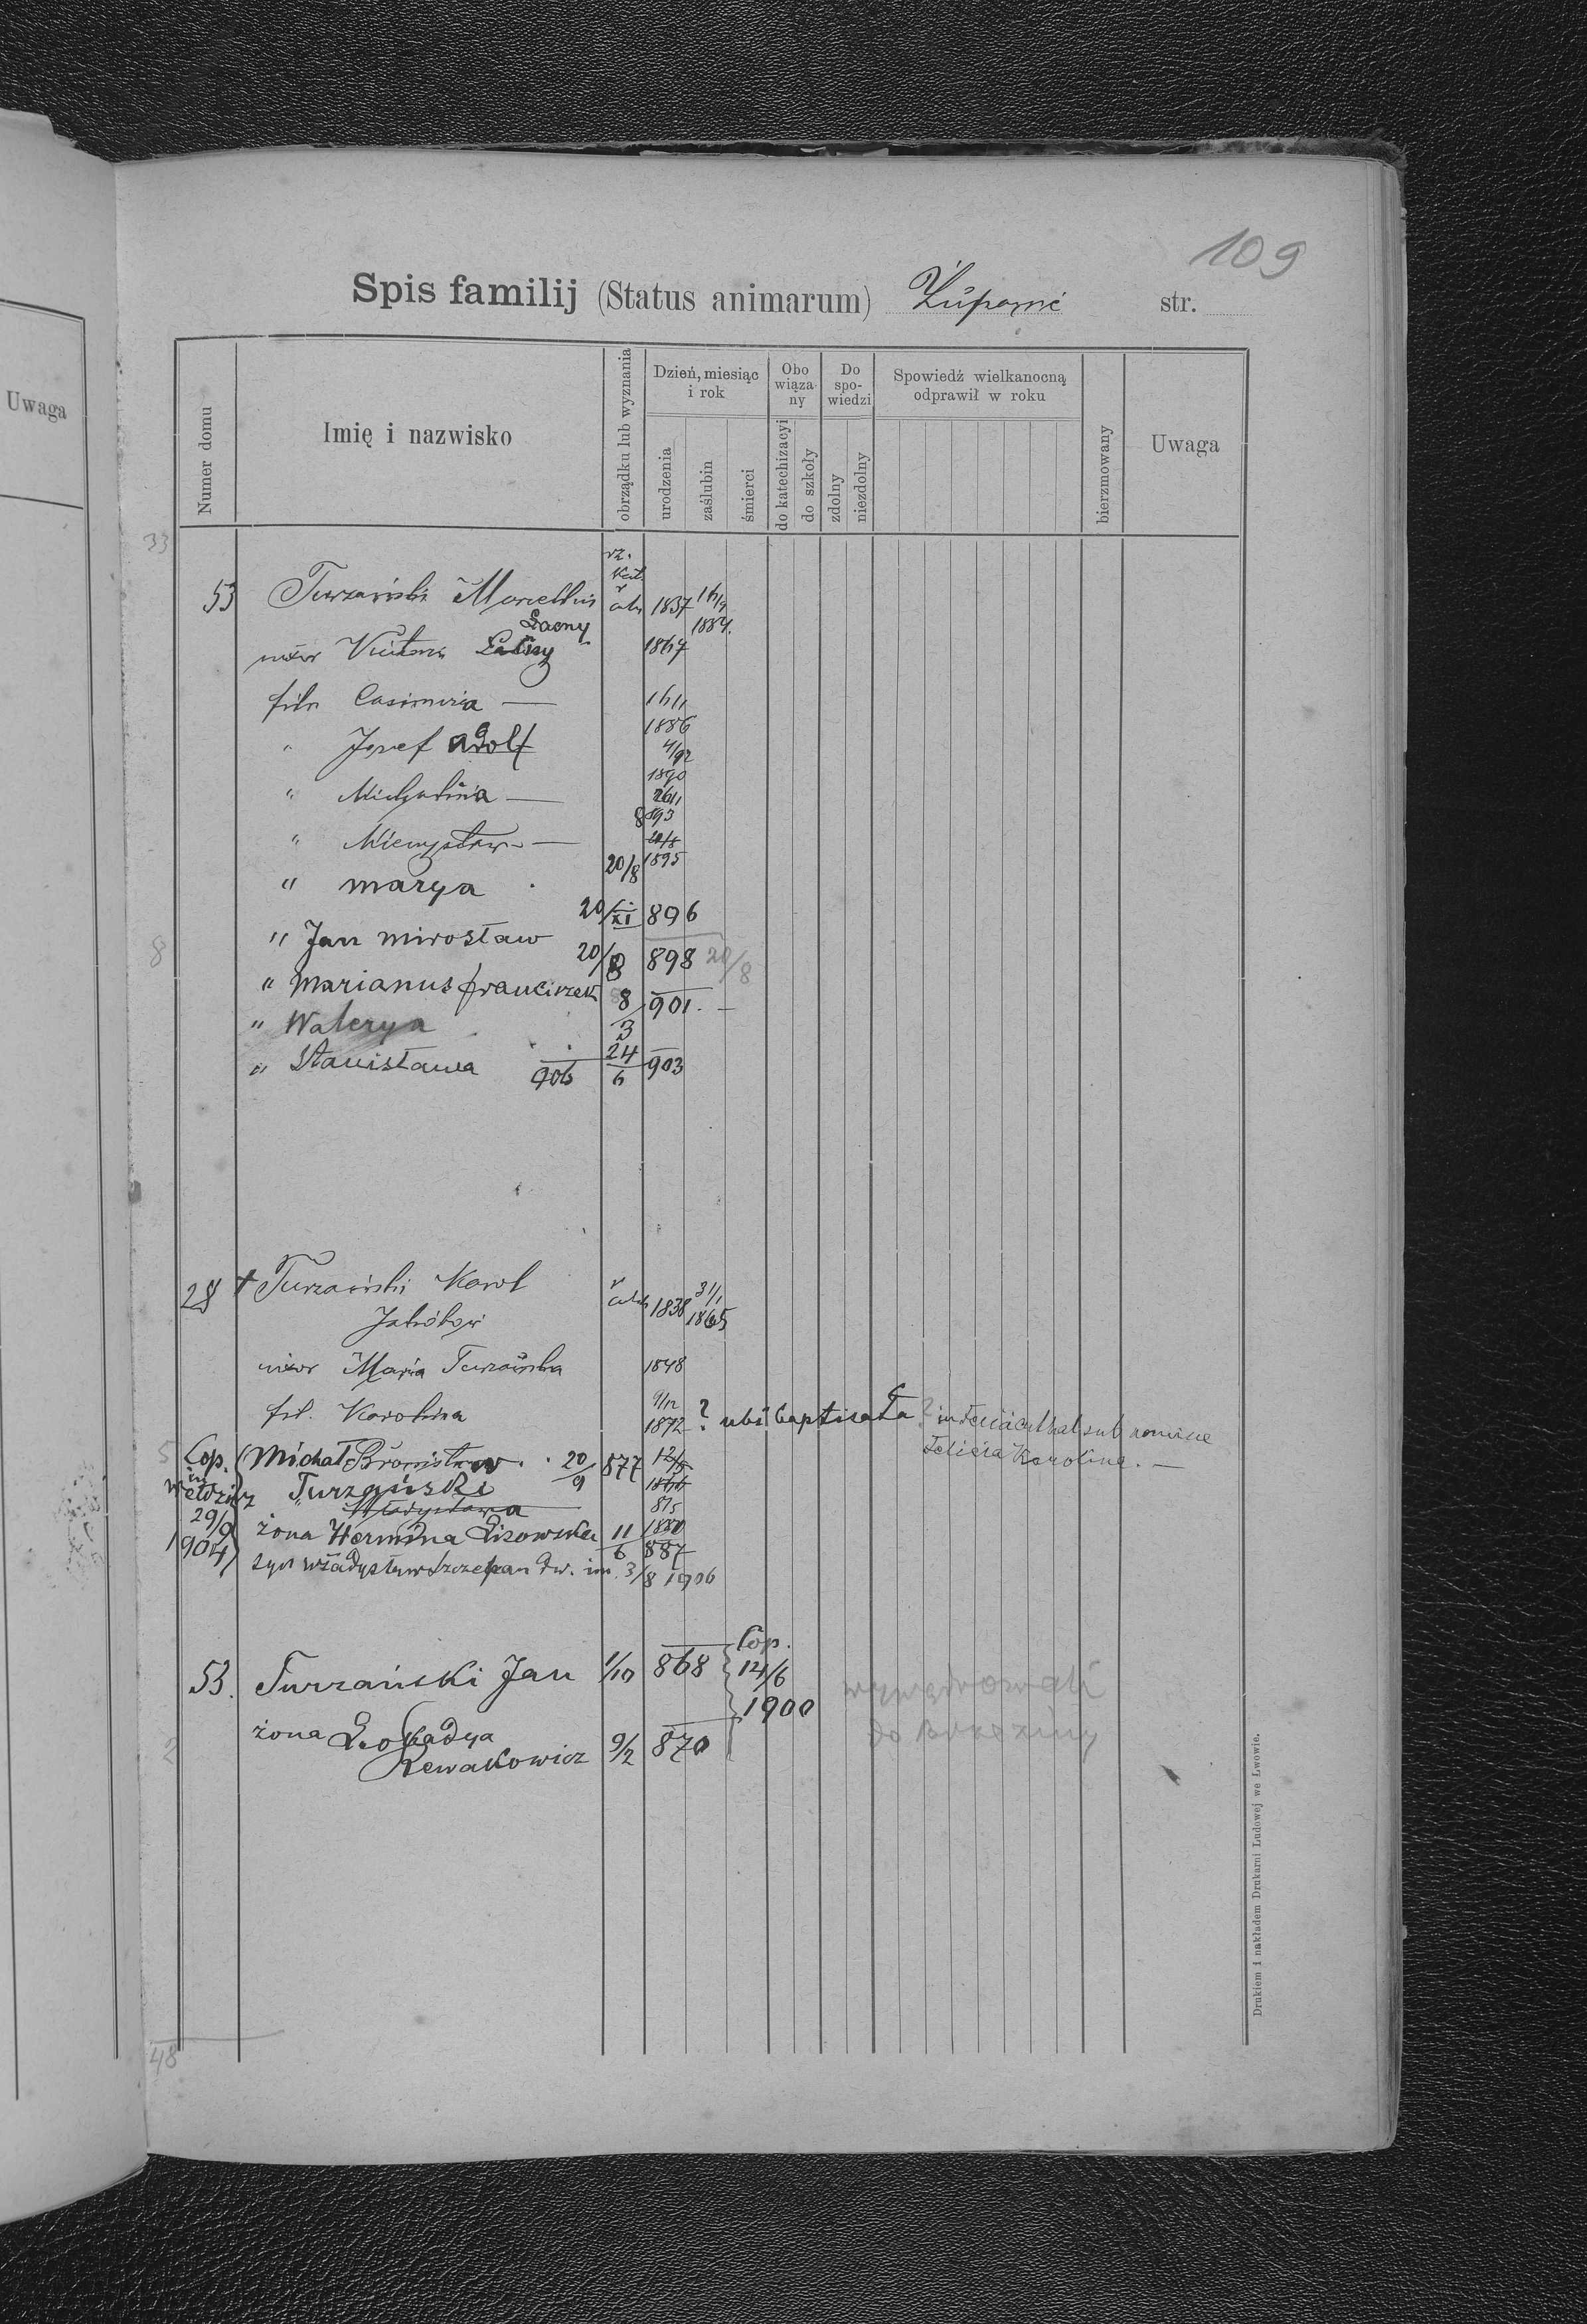 109
Spis familij (Status animarum) str.
Uwaga
Numer domu
Imię i nazwisko
obrządku lub wyznania
Dzień, miesiąc i rok
urodzenia
zaślubin
śmierci
Obo wiąza- ny
do katechizacyi
do szkoły
Do spo- wiedzi
zdolny
niezdolny
Spowiedź wielkanocną odprawił w roku
bierzmowany
Uwaga
33
rz. kat.
53 Turzański Marcellus 1837 16/9
Łacny 1884.
uxor Victoria 1867
filia Casimira — 16/11
1886
" Józef Adolf
1890
" Michalina — 26/11
893
" Mieczysław —
20/8 1895
" Marya
20/XI 896
8 " Jan Mirosław
20/8 898 20/8
" Marianus Franciszek
8/3 901. —
" Walerya
24/6 903
" Stanisława 906
28 + Turzański Karol 1838 31/1
Jakóbów 1865
uxor Maria Turzańska 1848
fil. Karolina 9/12
1872 ? ubi baptisata ? in sub nomine
Felicia Karolina. —
5 Cop. Michał Bronisław 20/9 877 12/5
in Wełdzirz Turzański 1866
Władysława 815
29/9 żona Hermina Lisowska 11/6 1880
1904 887
syn Władysław Szczepan dw. im. 3/8 1906
Cop.
53. Turzański Jan 1/10 868 14/6
1900 wywędrowali
2 żona Leokadya do Brzeziny
Rewakowicz 9/2 870
48
Drukiem i nakładem Drukarni Ludowej we Lwowie.